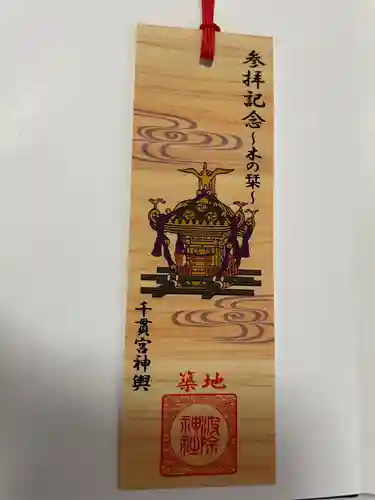 参拝記念～木の栞～
千貫宮神輿
築地
波除
神社